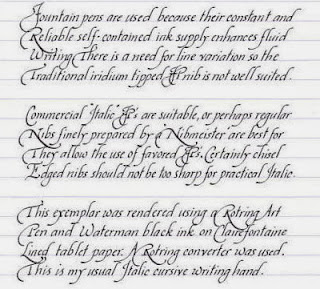 Fountain pens are used because their constant and
Reliable self-contained ink supply enhances fluid
Writing. There is a need for line variation so the
Traditional iridium tipped FP nib is not well suited.
Commercial "Italic" FPs are suitable, or perhaps regular
Nibs finely prepared by a Nibmeister are best for
They allow the use of favored FPs. Certainly chisel
Edged nibs should not be too sharp for practical Italic.
This exemplar was rendered using a Rotring Art
Pen and Waterman black ink on Clairefontaine
Lined tablet paper. A Rotring converter was used.
This is my usual Italic cursive writing hand.